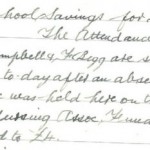 hool Savings - for
The Attendan
mpbell & F Begg are s
to day after an absen
e was held here on t
ursing Assoc.
d to £4.